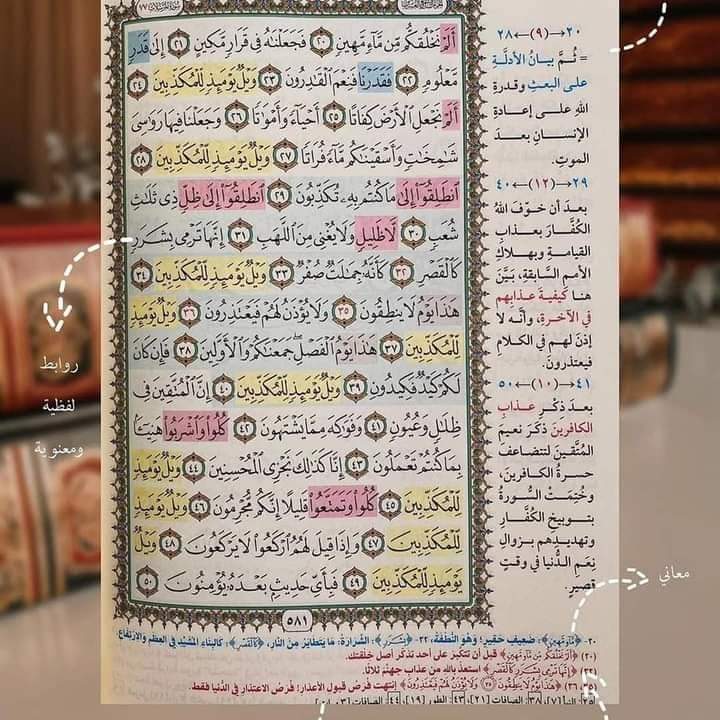 أَلَمْ نَخْلُقكُّم مِّن مَّآءٍ مَّهِينٍ ٢٠ فَجَعَلْنَٰهُ فِى قَرَارٍ مَّكِينٍ ٢١ إِلَىٰ قَدَرٍ
مَّعْلُومٍ ٢٢ فَقَدَرْنَا فَنِعْمَ ٱلْقَٰدِرُونَ ٢٣ وَيْلٌ يَوْمَئِذٍ لِّلْمُكَذِّبِينَ ٢٤
أَلَمْ نَجْعَلِ ٱلْأَرْضَ كِفَاتًا ٢٥ أَحْيَآءً وَأَمْوَٰتًا ٢٦ وَجَعَلْنَا فِيهَا رَوَٰسِىَ
شَٰمِخَٰتٍ وَأَسْقَيْنَٰكُم مَّآءً فُرَاتًا ٢٧ وَيْلٌ يَوْمَئِذٍ لِّلْمُكَذِّبِينَ ٢٨
ٱنطَلِقُوٓا۟ إِلَىٰ مَا كُنتُم بِهِۦ تُكَذِّبُونَ ٢٩ ٱنطَلِقُوٓا۟ إِلَىٰ ظِلٍّ ذِى ثَلَٰثِ
شُعَبٍ ٣٠ لَّا ظَلِيلٍ وَلَا يُغْنِى مِنَ ٱللَّهَبِ ٣١ إِنَّهَا تَرْمِى بِشَرَرٍ
كَٱلْقَصْرِ ٣٢ كَأَنَّهُۥ جِمَٰلَتٌ صُفْرٌ ٣٣ وَيْلٌ يَوْمَئِذٍ لِّلْمُكَذِّبِينَ ٣٤
هَٰذَا يَوْمُ لَا يَنطِقُونَ ٣٥ وَلَا يُؤْذَنُ لَهُمْ فَيَعْتَذِرُونَ ٣٦ وَيْلٌ يَوْمَئِذٍ
لِّلْمُكَذِّبِينَ ٣٧ هَٰذَا يَوْمُ ٱلْفَصْلِ جَمَعْنَٰكُمْ وَٱلْأَوَّلِينَ ٣٨ فَإِن كَانَ
لَكُمْ كَيْدٌ فَكِيدُونِ ٣٩ وَيْلٌ يَوْمَئِذٍ لِّلْمُكَذِّبِينَ ٤٠ إِنَّ ٱلْمُتَّقِينَ فِى
ظِلَٰلٍ وَعُيُونٍ ٤١ وَفَوَٰكِهَ مِمَّا يَشْتَهُونَ ٤٢ كُلُوا۟ وَٱشْرَبُوا۟ هَنِيٓـًٔۢا
بِمَا كُنتُمْ تَعْمَلُونَ ٤٣ إِنَّا كَذَٰلِكَ نَجْزِى ٱلْمُحْسِنِينَ ٤٤ وَيْلٌ يَوْمَئِذٍ
لِّلْمُكَذِّبِينَ ٤٥ كُلُوا۟ وَتَمَتَّعُوا۟ قَلِيلًا إِنَّكُم مُّجْرِمُونَ ٤٦ وَيْلٌ يَوْمَئِذٍ
لِّلْمُكَذِّبِينَ ٤٧ وَإِذَا قِيلَ لَهُمُ ٱرْكَعُوا۟ لَا يَرْكَعُونَ ٤٨ وَيْلٌ
يَوْمَئِذٍ لِّلْمُكَذِّبِينَ ٤٩ فَبِأَىِّ حَدِيثٍۭ بَعْدَهُۥ يُؤْمِنُونَ ٥٠
٥٨١
٢٠→(٩)←٢٨
= ثُمَّ بيانُ الأدلَّةِ
على البعثِ وقدرةِ
اللهِ على إعادةِ
الإنسانِ بعدَ
الموتِ.
٢٩→(١٢)←٤٠
بعدَ أن خوَّفَ اللهُ
الكُفَّارَ بعذابِ
القيامةِ وبهلاكِ
الأممِ السَّابقةِ، بَيَّنَ
هنا كيفيةَ عذابِهم
في الآخرةِ، وأنَّه لا
إذنَ لهم في الكلامِ
فيعتذرونَ.
٤١→(١٠)←٥٠
بعدَ ذكرِ عذابِ
الكافرينَ ذكَرَ نعيمَ
المُتَّقينَ لتتضاعفَ
حسرةُ الكافرينَ،
وخُتِمَتْ السُّورةُ
بتوبيخِ الكُفَّارِ
وتهديدِهم بزوالِ
نِعَمِ الدُّنيا في وقتٍ
قصيرٍ.
روابط
لفظية
ومعنوية
معاني
٢٠- ﴿مَّآءٍ مَّهِينٍ﴾: ضعيفٍ حقيرٍ؛ وهو النُّطفةُ، ٣٢- ﴿بِشَرَرٍ﴾: الشَّرارةُ: ما يتطايرُ من النارِ، ﴿كَٱلْقَصْرِ﴾: كالبناءِ المُشيَّدِ في العِظَمِ والارتفاعِ.
(٢٠) ﴿أَلَمْ نَخْلُقكُّم مِّن مَّآءٍ مَّهِينٍ﴾ قبل أن تتكبَّر على أحد تذكَّر أصل خلقتك.
(٣٢) ﴿إِنَّهَا تَرْمِى بِشَرَرٍ كَٱلْقَصْرِ﴾ استعذ بالله من عذاب جهنَّم ثلاثًا.
(٣٥، ٣٦) ﴿هَٰذَا يَوْمُ لَا يَنطِقُونَ ٣٥ وَلَا يُؤْذَنُ لَهُمْ فَيَعْتَذِرُونَ﴾ انتهت فُرَصُ قبول الأعذارِ؛ فُرَصُ الاعتذارِ في الدُّنيا فقط.